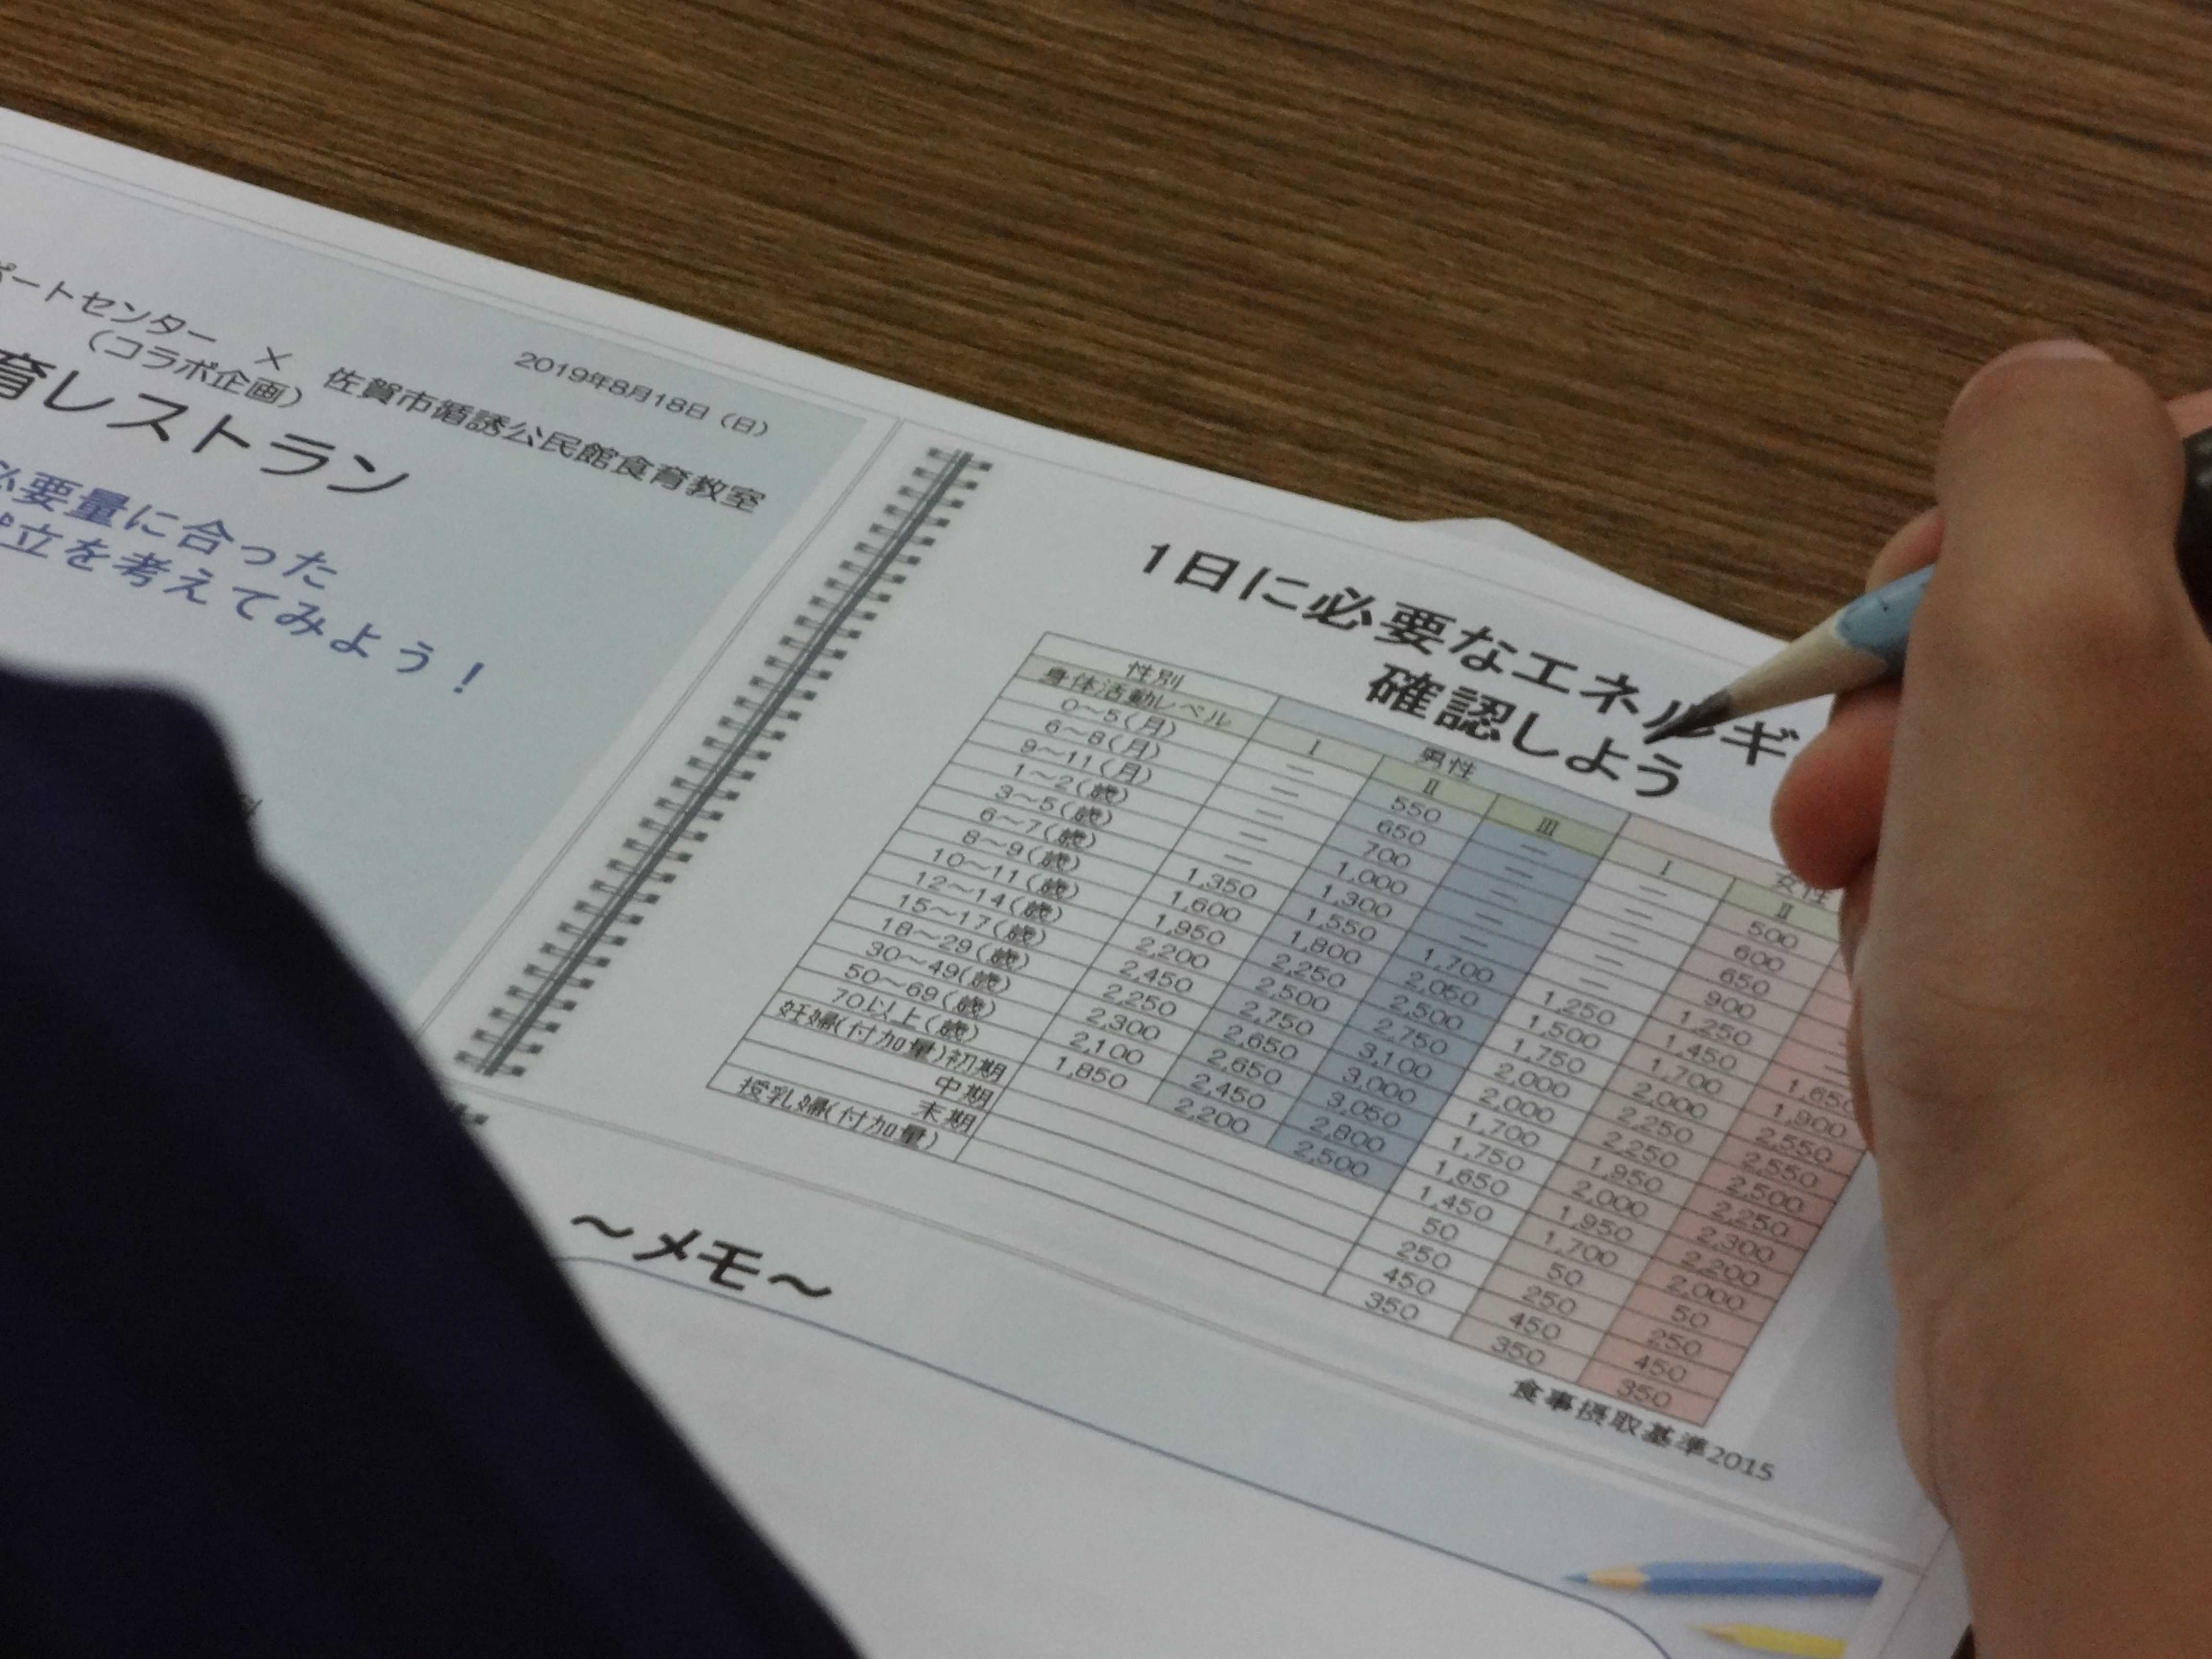 2019年8月18日（日）
ポートセンター × 佐賀市循誘公民館食育教室
（コラボ企画）
育レストラン
必要量に合った
立を考えてみよう！
1日に必要なエネルギ
確認しよう
性別 男性 女性
身体活動レベル Ⅰ Ⅱ Ⅲ Ⅰ Ⅱ
0～5(月) — 550 — — 500
6～8(月) — 650 — — 600
9～11(月) — 700 — — 650
1～2(歳) — 1,000 — — 900
3～5(歳) — 1,300 — — 1,250 —
6～7(歳) 1,350 1,550 1,700 1,250 1,450 1,650
8～9(歳) 1,600 1,800 2,050 1,500 1,700 1,900
10～11(歳) 1,950 2,250 2,500 1,750 2,000 2,550
12～14(歳) 2,200 2,500 2,750 2,000 2,250 2,550
15～17(歳) 2,450 2,750 3,100 2,000 2,250 2,500
18～29(歳) 2,250 2,650 3,000 1,700 1,950 2,250
30～49(歳) 2,300 2,650 3,050 1,750 2,000 2,300
50～69(歳) 2,100 2,450 2,800 1,650 1,950 2,200
70以上(歳) 1,850 2,200 2,500 1,450 1,700 2,000
妊婦(付加量)初期 50 50 50
中期 250 250 250
末期 450 450 450
授乳婦(付加量) 350 350 350
食事摂取基準2015
～メモ～